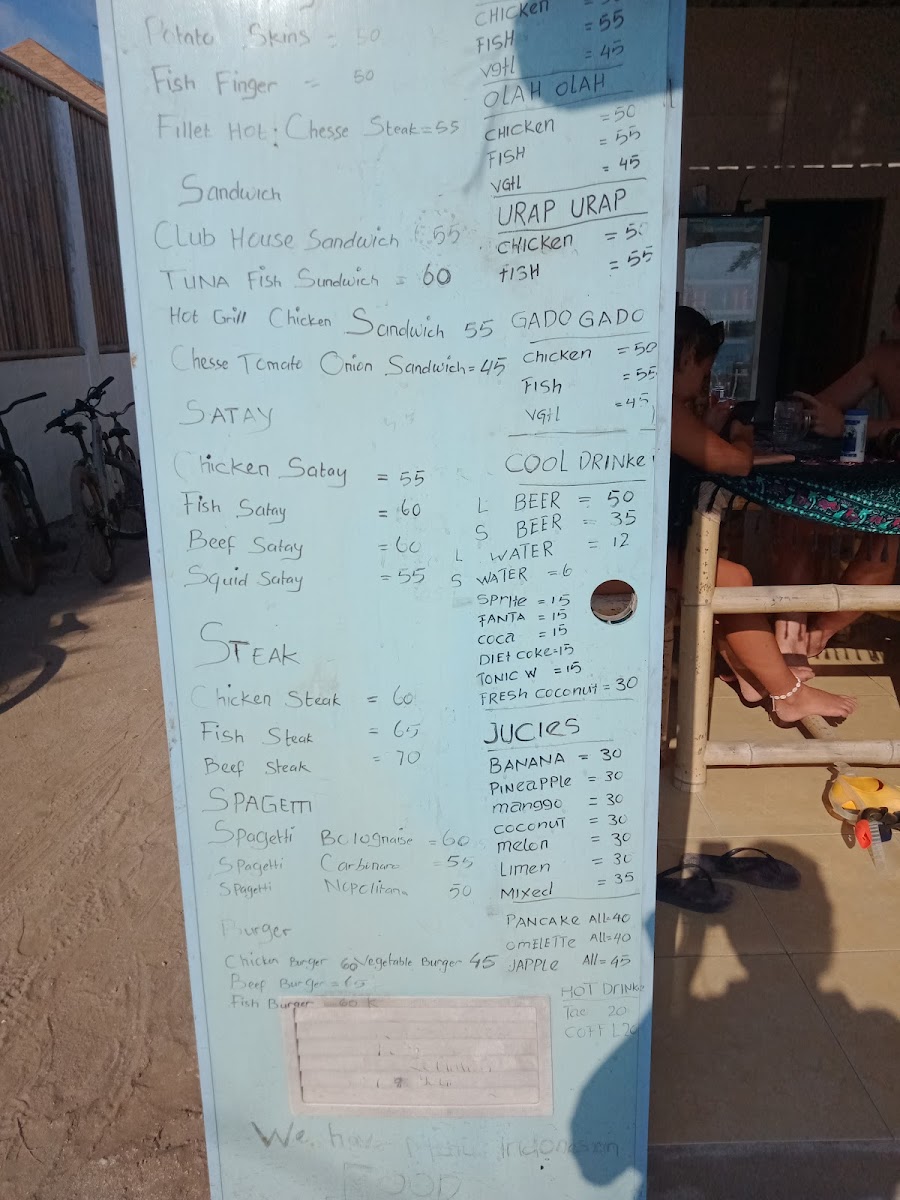 Potato Skins = 50
Fish Finger = 50
Fillet Hot: Chesse Steak = 55
Sandwich
Club House Sandwich 55
TUNA Fish Sundwich = 60
Hot Grill Chicken Sandwich 55
Chesse Tomato Onion Sandwich = 45
SATAY
Chicken Satay = 55
Fish Satay = 60
Beef Satay = 60
Squid Satay = 55
STEAK
Chicken Steak = 60
Fish Steak = 65
Beef Steak = 70
SPAGETTI
Spagetti Bolognaise = 60
Spagetti Carbonara = 55
Spagetti Napolitana 50
Burger
Chicken Burger 60 Vegetable Burger 45
Beef Burger = 65
Fish Burger 60 K
We have Indonesian
FOOD
CHICKEN
FISH = 55
VGtL = 45
OLAH OLAH
CHICKEN = 50
FISH = 55
VGtL = 45
URAP URAP
CHICKEN = 50
FISH = 55
GADO GADO
Chicken = 50
Fish = 55
VGtL = 45
COOL DRINKe
L BEER = 50
S BEER = 35
L WATER = 12
S WATER = 6
SPRITE = 15
FANTA = 15
COCA = 15
DIEt COKE = 15
TONIC W = 15
FRESH COCONUT = 30
JUCIES
BANANA = 30
PINEAPPLE = 30
manggo = 30
COCONUT = 30
melon = 30
Limen = 30
MIXED = 35
PANCAKE ALL = 40
OMELETTE ALL = 40
JAPPLE ALL = 45
HOT DRINK
Tae 20
COFF L 20